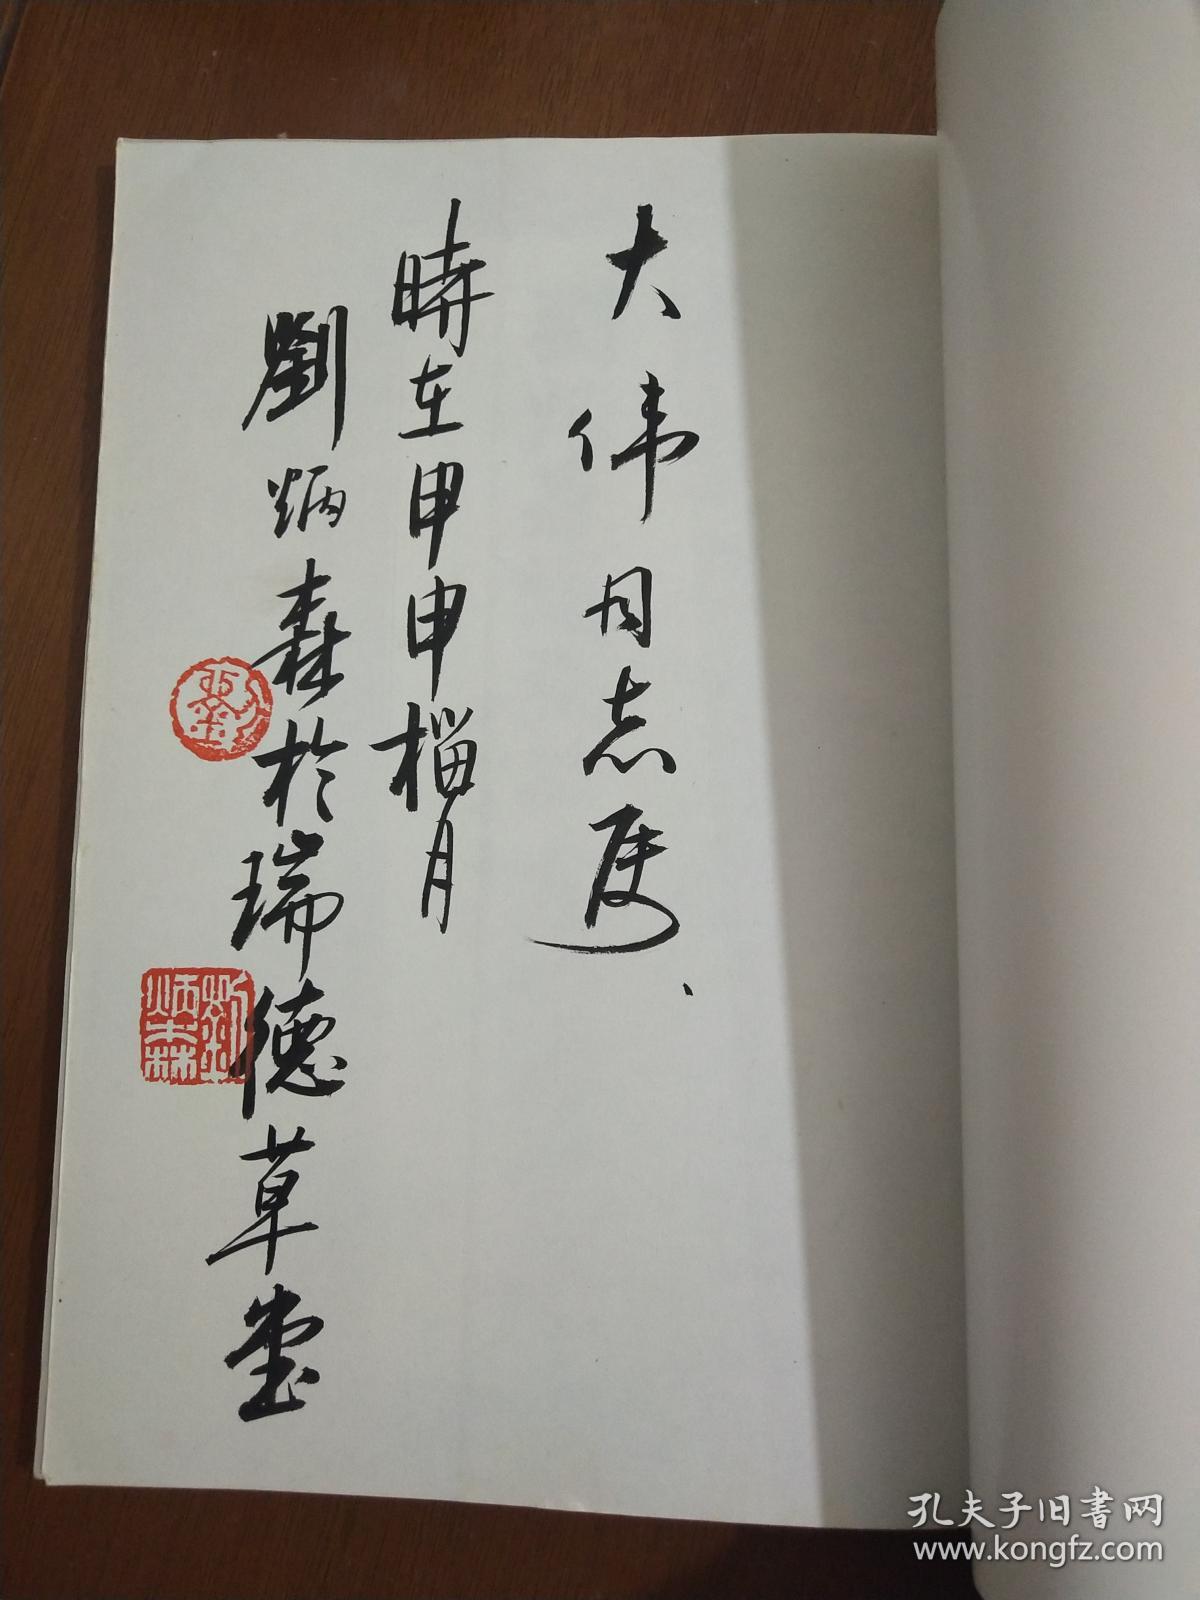 大伟同志
時在甲申榴月
劉炳森於瑞德草堂
劉
劉炳森
孔夫子旧书网
www.kongfz.com